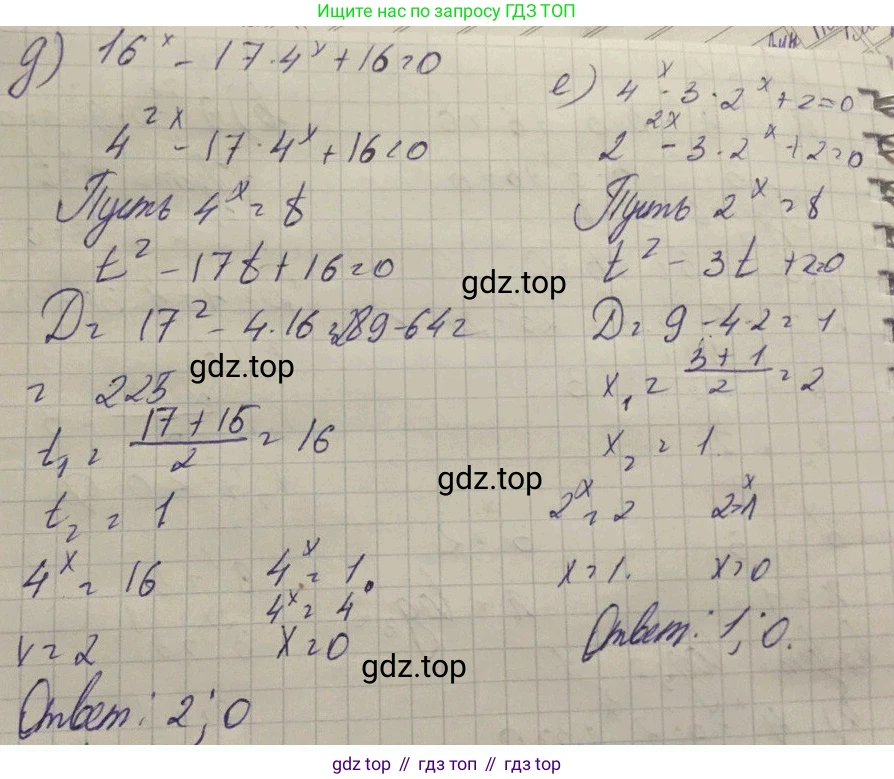 Ищите нас по запросу ГДЗ ТОП
д) 16^x - 17·4^x + 16 = 0
4^2x - 17·4^x + 16 = 0
Пусть 4^x = t
t^2 - 17t + 16 = 0
D = 17^2 - 4·16 = 289 - 64 =
= 225
t_1 = (17 + 15)/2 = 16
t_2 = 1
4^x = 16    4^x = 1
4^x = 4^0
x = 2    x = 0
Ответ: 2; 0
е) 4^x - 3·2^x + 2 = 0
2^2x - 3·2^x + 2 = 0
Пусть 2^x = t
t^2 - 3t + 2 = 0
D = 9 - 4·2 = 1
x_1 = (3 + 1)/2 = 2
x_2 = 1
2^x = 2    2^x = 1
x = 1.    x = 0
Ответ: 1; 0.
gdz.top
gdz.top
gdz.top
gdz.top
gdz.top // гдз топ // gdz top